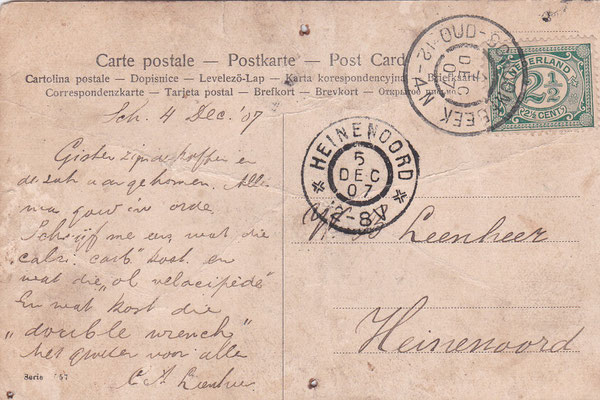 Carte postale — Postkarte — Post Card
Cartolina postale — Dopisnice — Levelező-Lap — Karta korespondencyjna — Briefkaart
Correspondenzkarte — Tarjeta postal — Brefkort — Brevkort — Открытое письмо
NEDERLAND
2½
2½ CENT
4 DEC 07
HEINENOORD
5
DEC
07
V 2-8 V
Sch. 4 Dec. '07
Gisteren zijn de koffer en
de zak aangekomen. Alles
in orde.
Schrijf me eens wat die
calci. carb. kost. en
wat die „ol velocipède"
En wat kost die
„double wrench"
Met groeten voor alle
C A Leenheer
Leenheer
Heinenoord
Serie 67